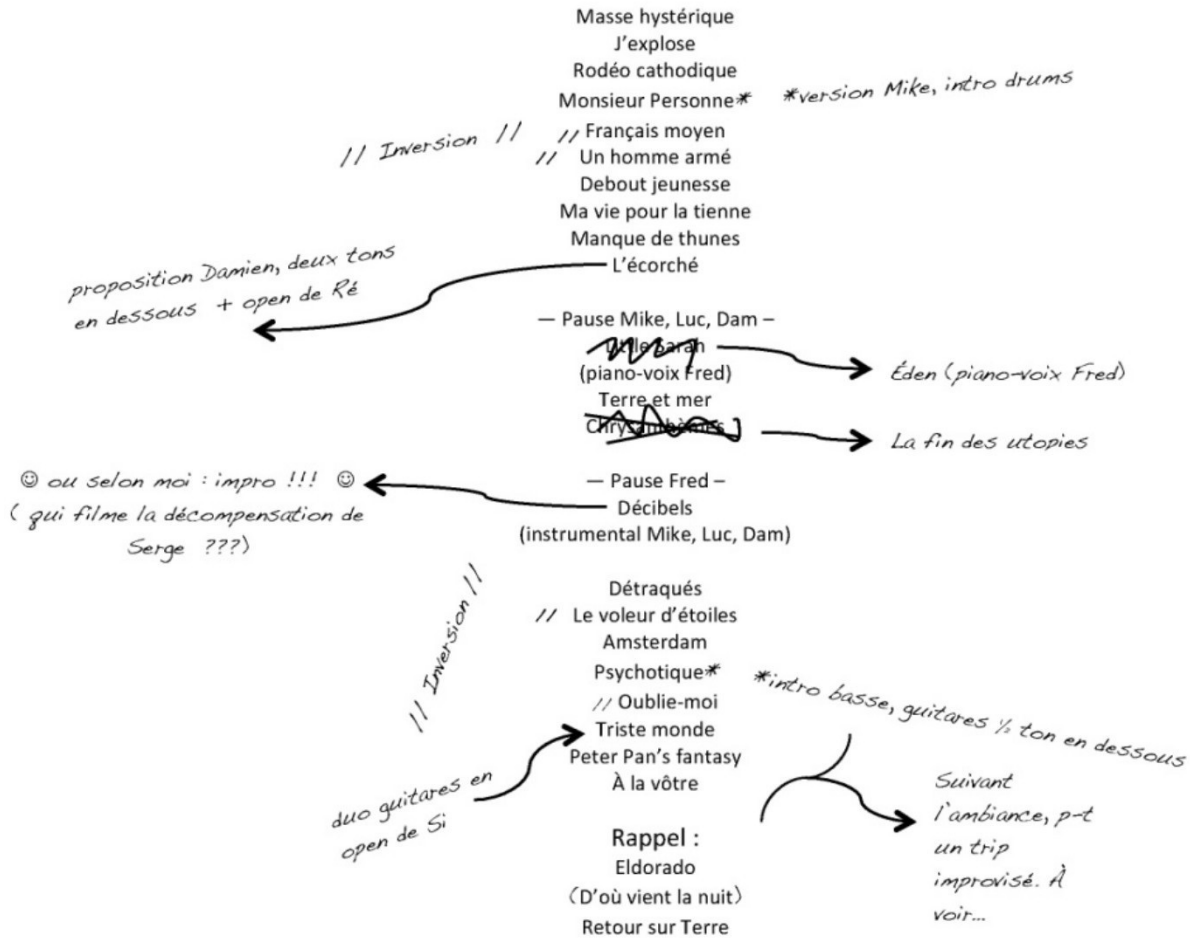 Masse hystérique
J'explose
Rodéo cathodique
Monsieur Personne* *version Mike, intro drums
// Inversion // // Français moyen
// Un homme armé
Debout jeunesse
Ma vie pour la tienne
Manque de thunes
L'écorché
proposition Damien, deux tons
en dessous + open de Ré
— Pause Mike, Luc, Dam –
Little Sarah
Éden (piano-voix Fred)
(piano-voix Fred)
Terre et mer
Chrysanthèmes
La fin des utopies
— Pause Fred –
Décibels
(instrumental Mike, Luc, Dam)
☺ ou selon moi : impro !!! ☺
( qui filme la décompensation de
Serge ???)
// Inversion //
Détraqués
// Le voleur d'étoiles
Amsterdam
Psychotique* *intro basse, guitares ½ ton en dessous
// Oublie-moi
Triste monde
Peter Pan's fantasy
À la vôtre
duo guitares en
open de Si
Rappel :
Eldorado
(D'où vient la nuit)
Retour sur Terre
Suivant
l'ambiance, p-t
un trip
improvisé. À
voir...